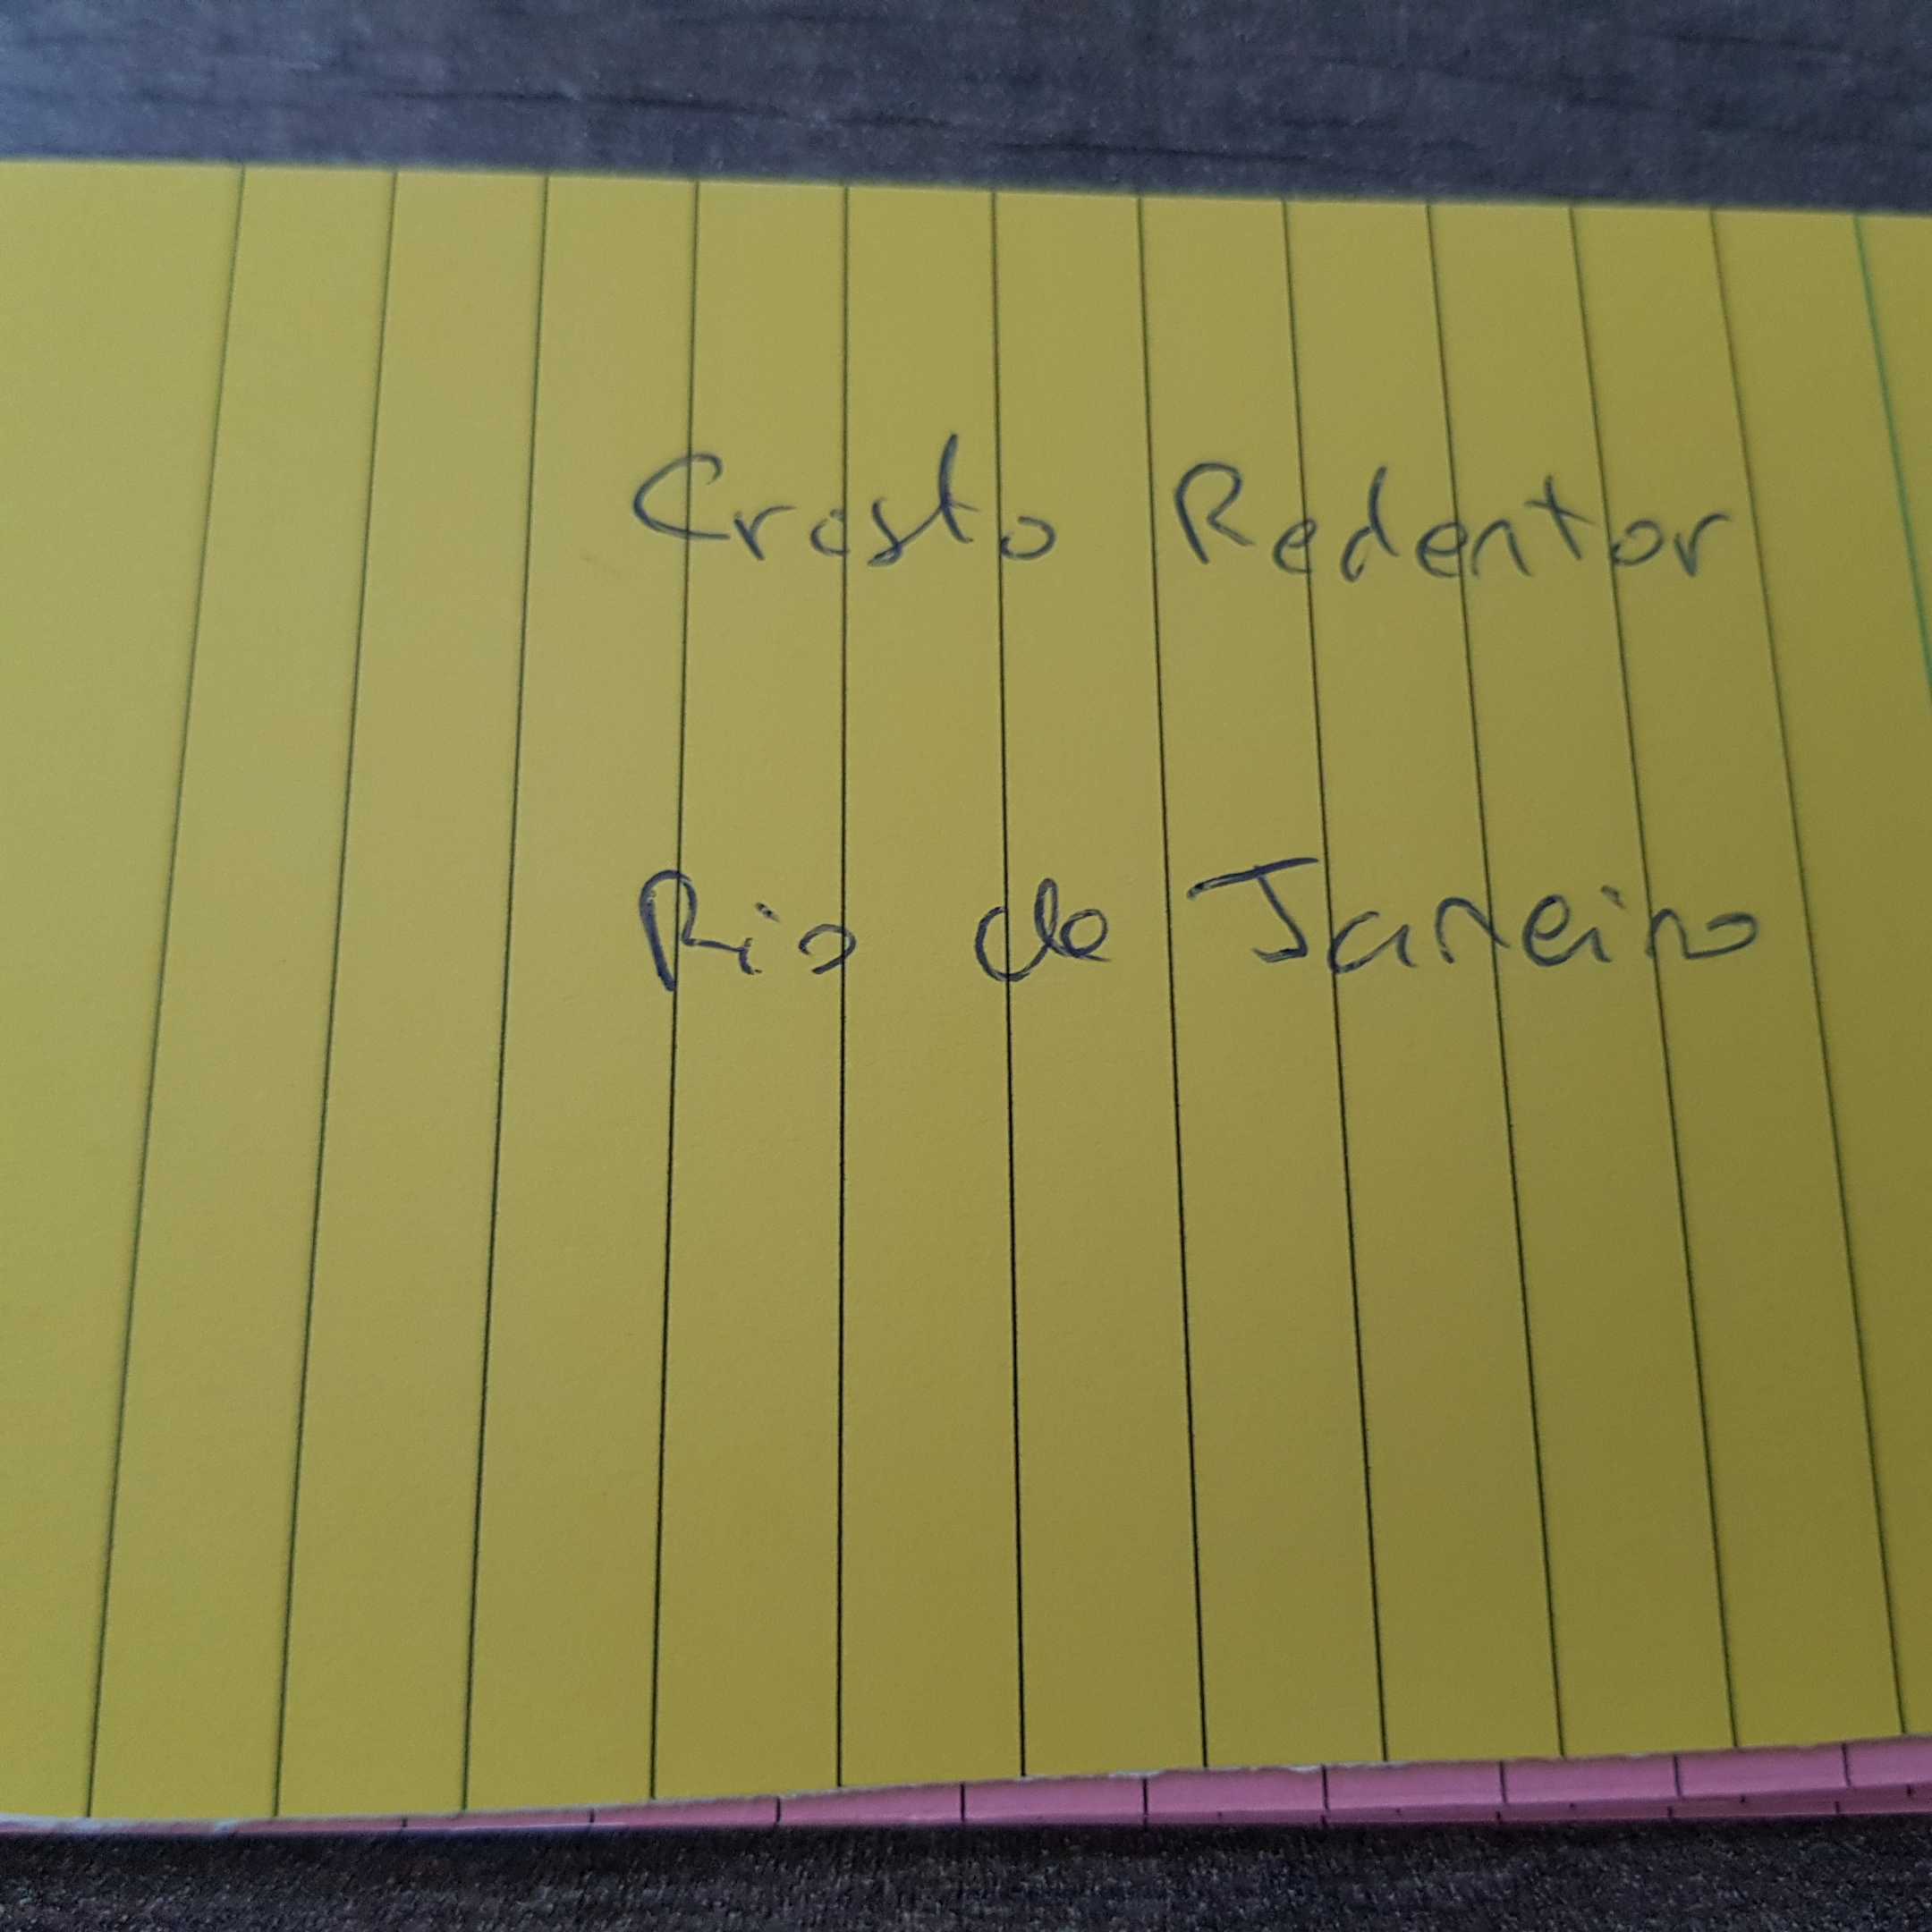 Cristo Redentor
Rio de Janeiro